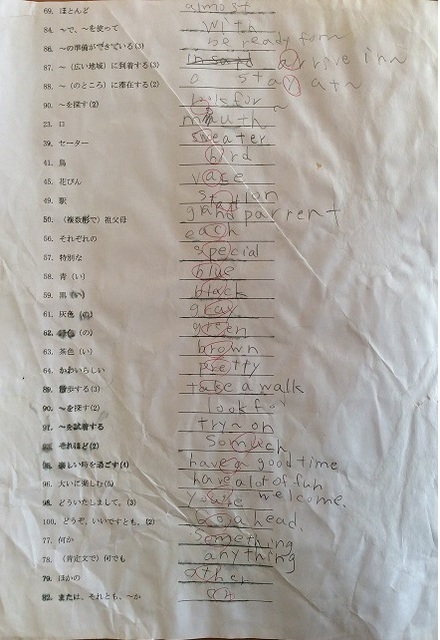 69. ほとんど almost
84. ～で、～を使って with
86. ～の準備ができている(3) be ready for～
87. ～(広い地域)に到着する(3) arrive in～
88. ～(のところ)に滞在する(2) a stay at～
90. ～を探す(2)
23. 口 mouth
39. セーター sweater
41. 鳥 bird
45. 花びん vase
49. 駅 station
50. (複数形で)祖父母 grand parrent
56. それぞれの each
57. 特別な special
58. 青(い) blue
59. 黒(い) black
61. 灰色(の) gray
62. 緑色(の) green
63. 茶色(い) brown
64. かわいらしい pretty
89. 散歩する(3) take a walk
90. ～を探す(2) look for
91. ～を試着する try~on
それほど(2) somuch
楽しい時を過ごす(4) have a good time
96. 大いに楽しむ(5) have a lot of fun
98. どういたしまして。(3) you're welcome.
100. どうぞ。いいですとも。(2) ahead.
77. 何か something
78. (肯定文で)何でも anything
79. ほかの ather
82. または、それとも、～か